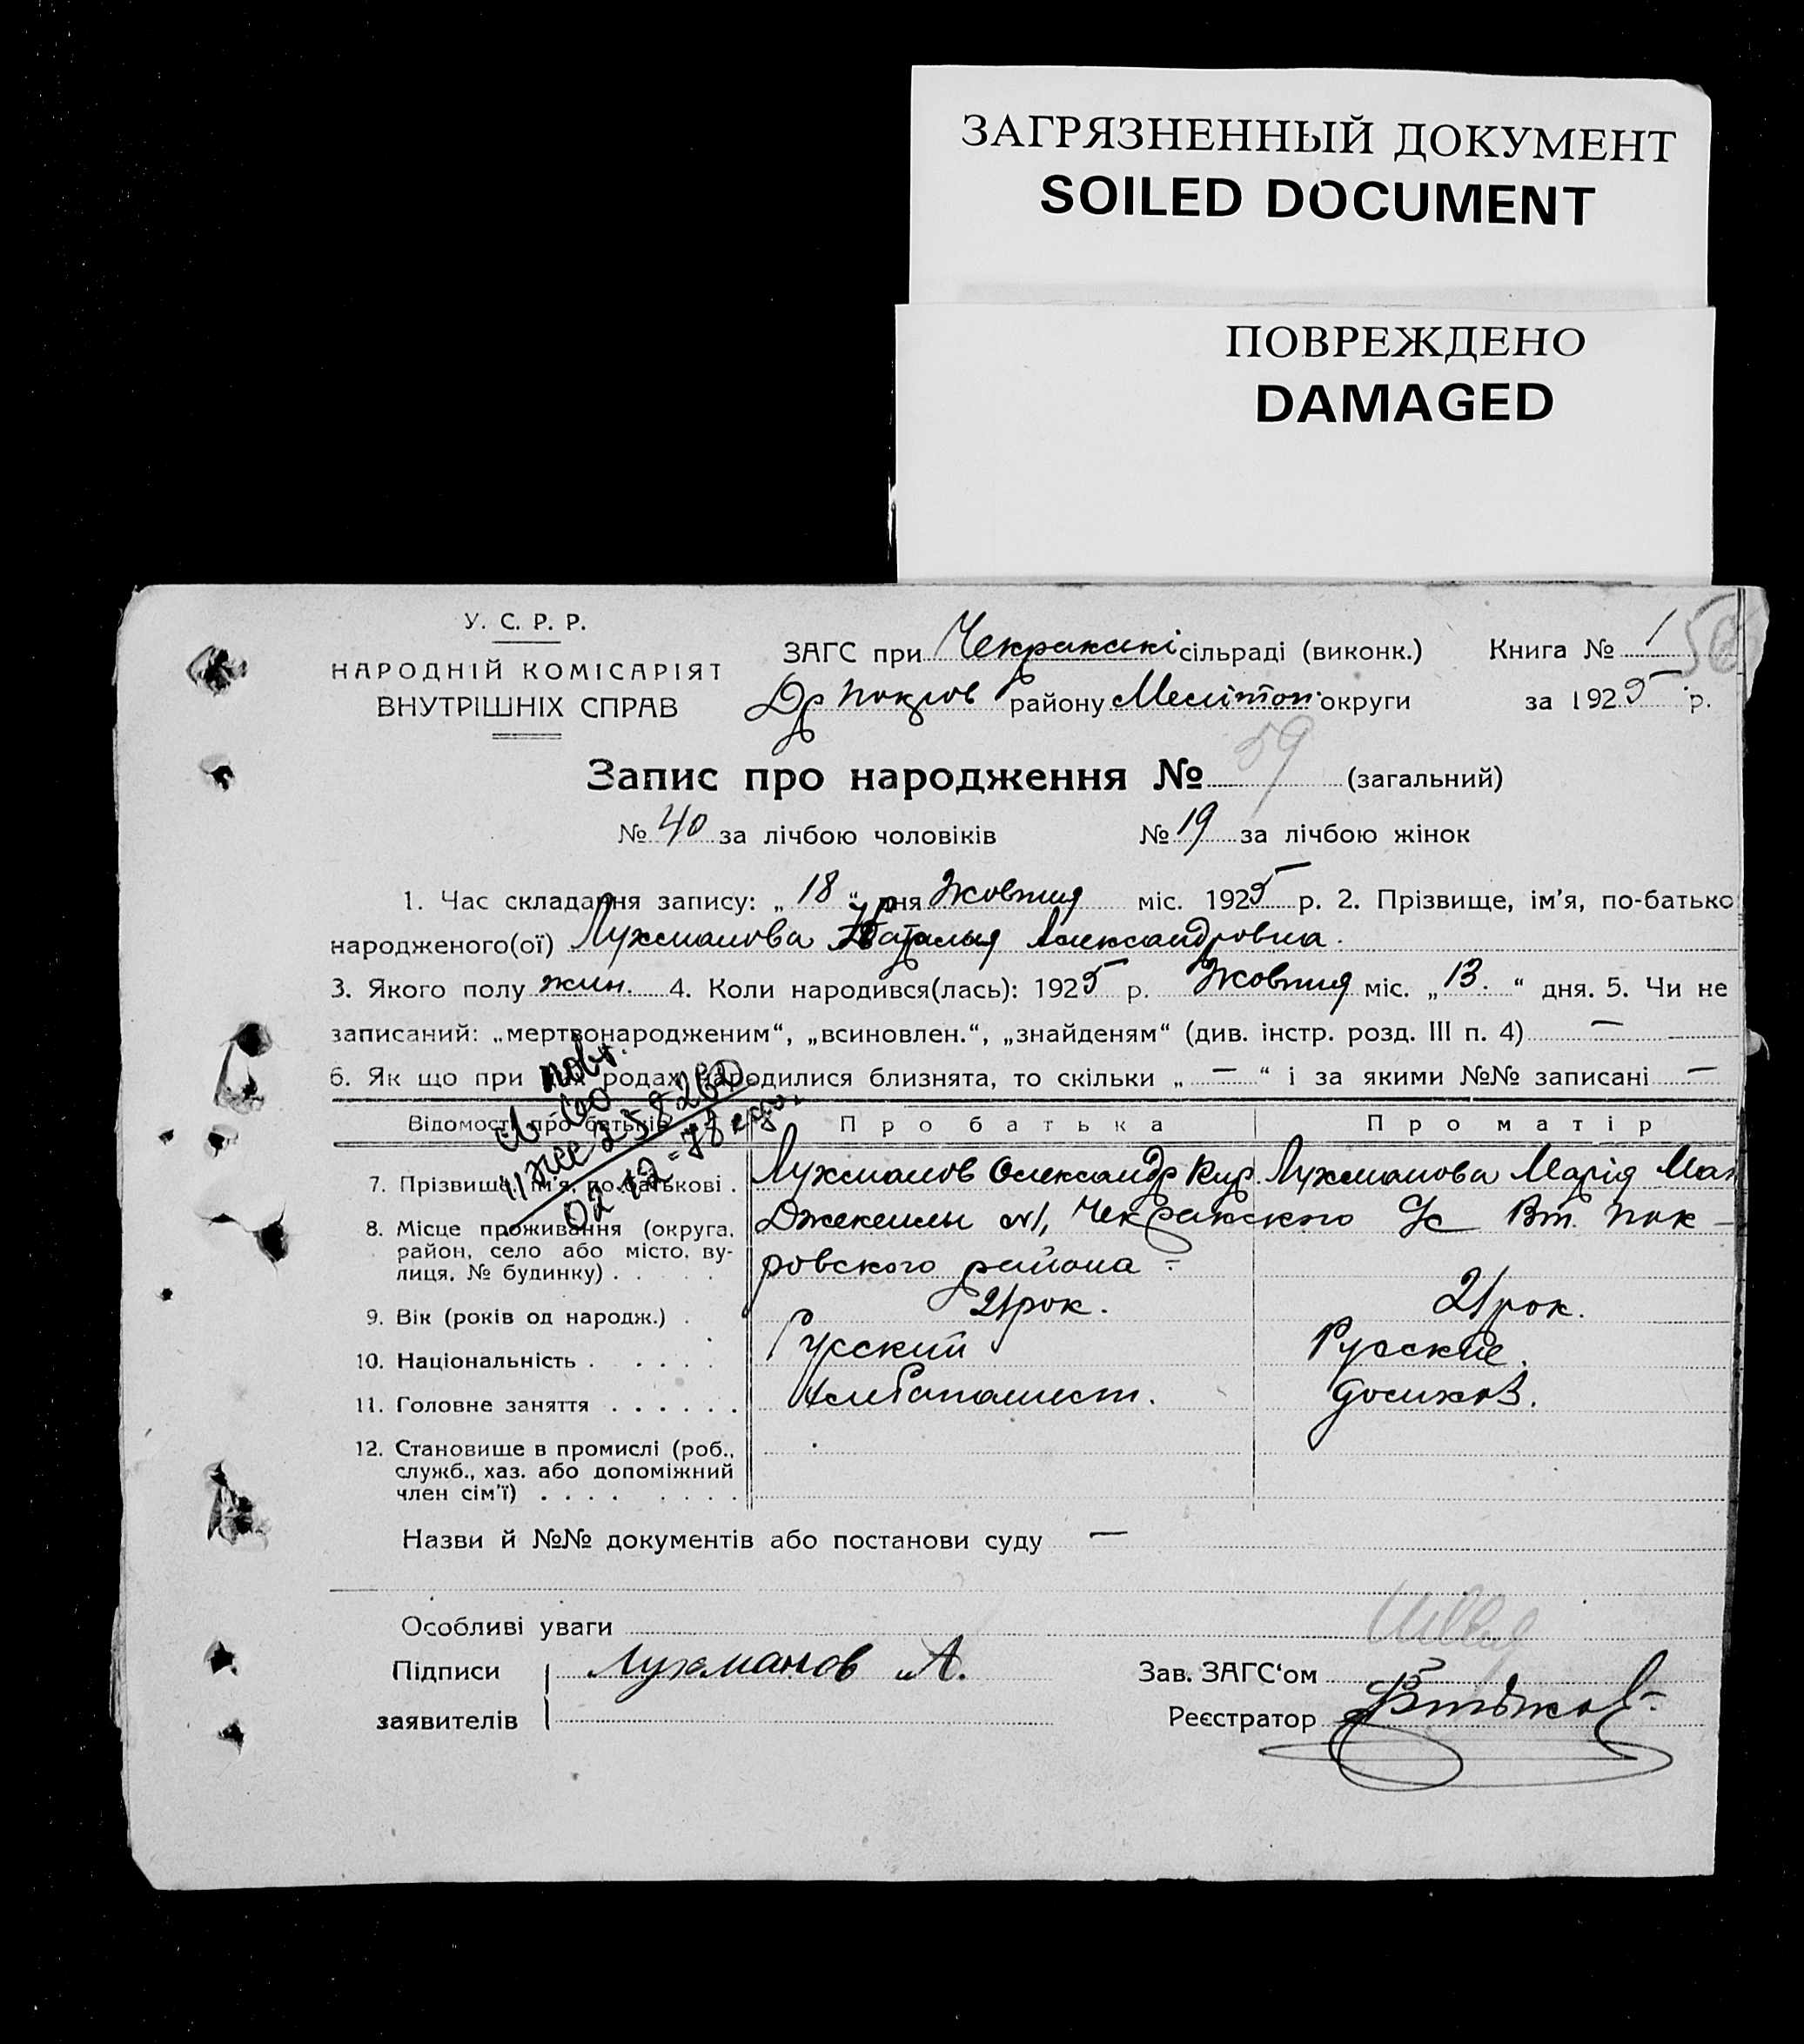 ЗАГРЯЗНЕННЫЙ ДОКУМЕНТ
SOILED DOCUMENT
ПОВРЕЖДЕНО
DAMAGED
У. С. Р. Р.
НАРОДНІЙ КОМІСАРІЯТ
ВНУТРІШНІХ СПРАВ
ЗАГС при Чекракскі сільраді (виконк.) Книга № 1
Др покров району Мелітоп. округи за 1925 р.
Запис про народження № 59 (загальний)
№ 40 за лічбою чоловіків № 19 за лічбою жінок
1. Час складання запису: „ 18 “ дня Жовтня міс. 1925 р. 2. Прізвище, ім’я, по-батько
народженого(ої) Лухманова Наталья Александровна.
3. Якого полу жин. 4. Коли народився(лась): 1925 р. Жовтня міс. „ 13. “ дня. 5. Чи не
записаний: „мертвонародженим“, „всиновлен.“, „знайденям“ (див. інстр. розд. III п. 4) —
6. Як що при цих родах народилися близнята, то скільки „ — “ і за якими №№ записані —
повт.
258260
Відомості про батьків Про батька Про матір
7. Прізвище, ім’я, по-батькові . Лухманов Олександр Кир. Лухманова Марія Мат
8. Місце проживання (округа, Джекельы №1, Чекракского Вт. Пок-
район, село або місто, ву- ровского района
лиця, № будинку) . . . .
9. Вік (років од народж.) . 21 рок. 21 рок.
10. Національність . . . . . Русский Русские.
11. Головне заняття . . . . . . домхоз.
12. Становище в промислі (роб.,
служб., хаз. або допоміжний
член сім’ї) . . . . . . . .
Назви й №№ документів або постанови суду —
Особливі уваги
Підписи Лухманов А. Зав. ЗАГС‘ом
заявителів Реєстратор